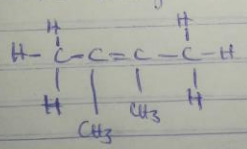 H H
H-C-C=C-C-H
H CH3 H
CH3